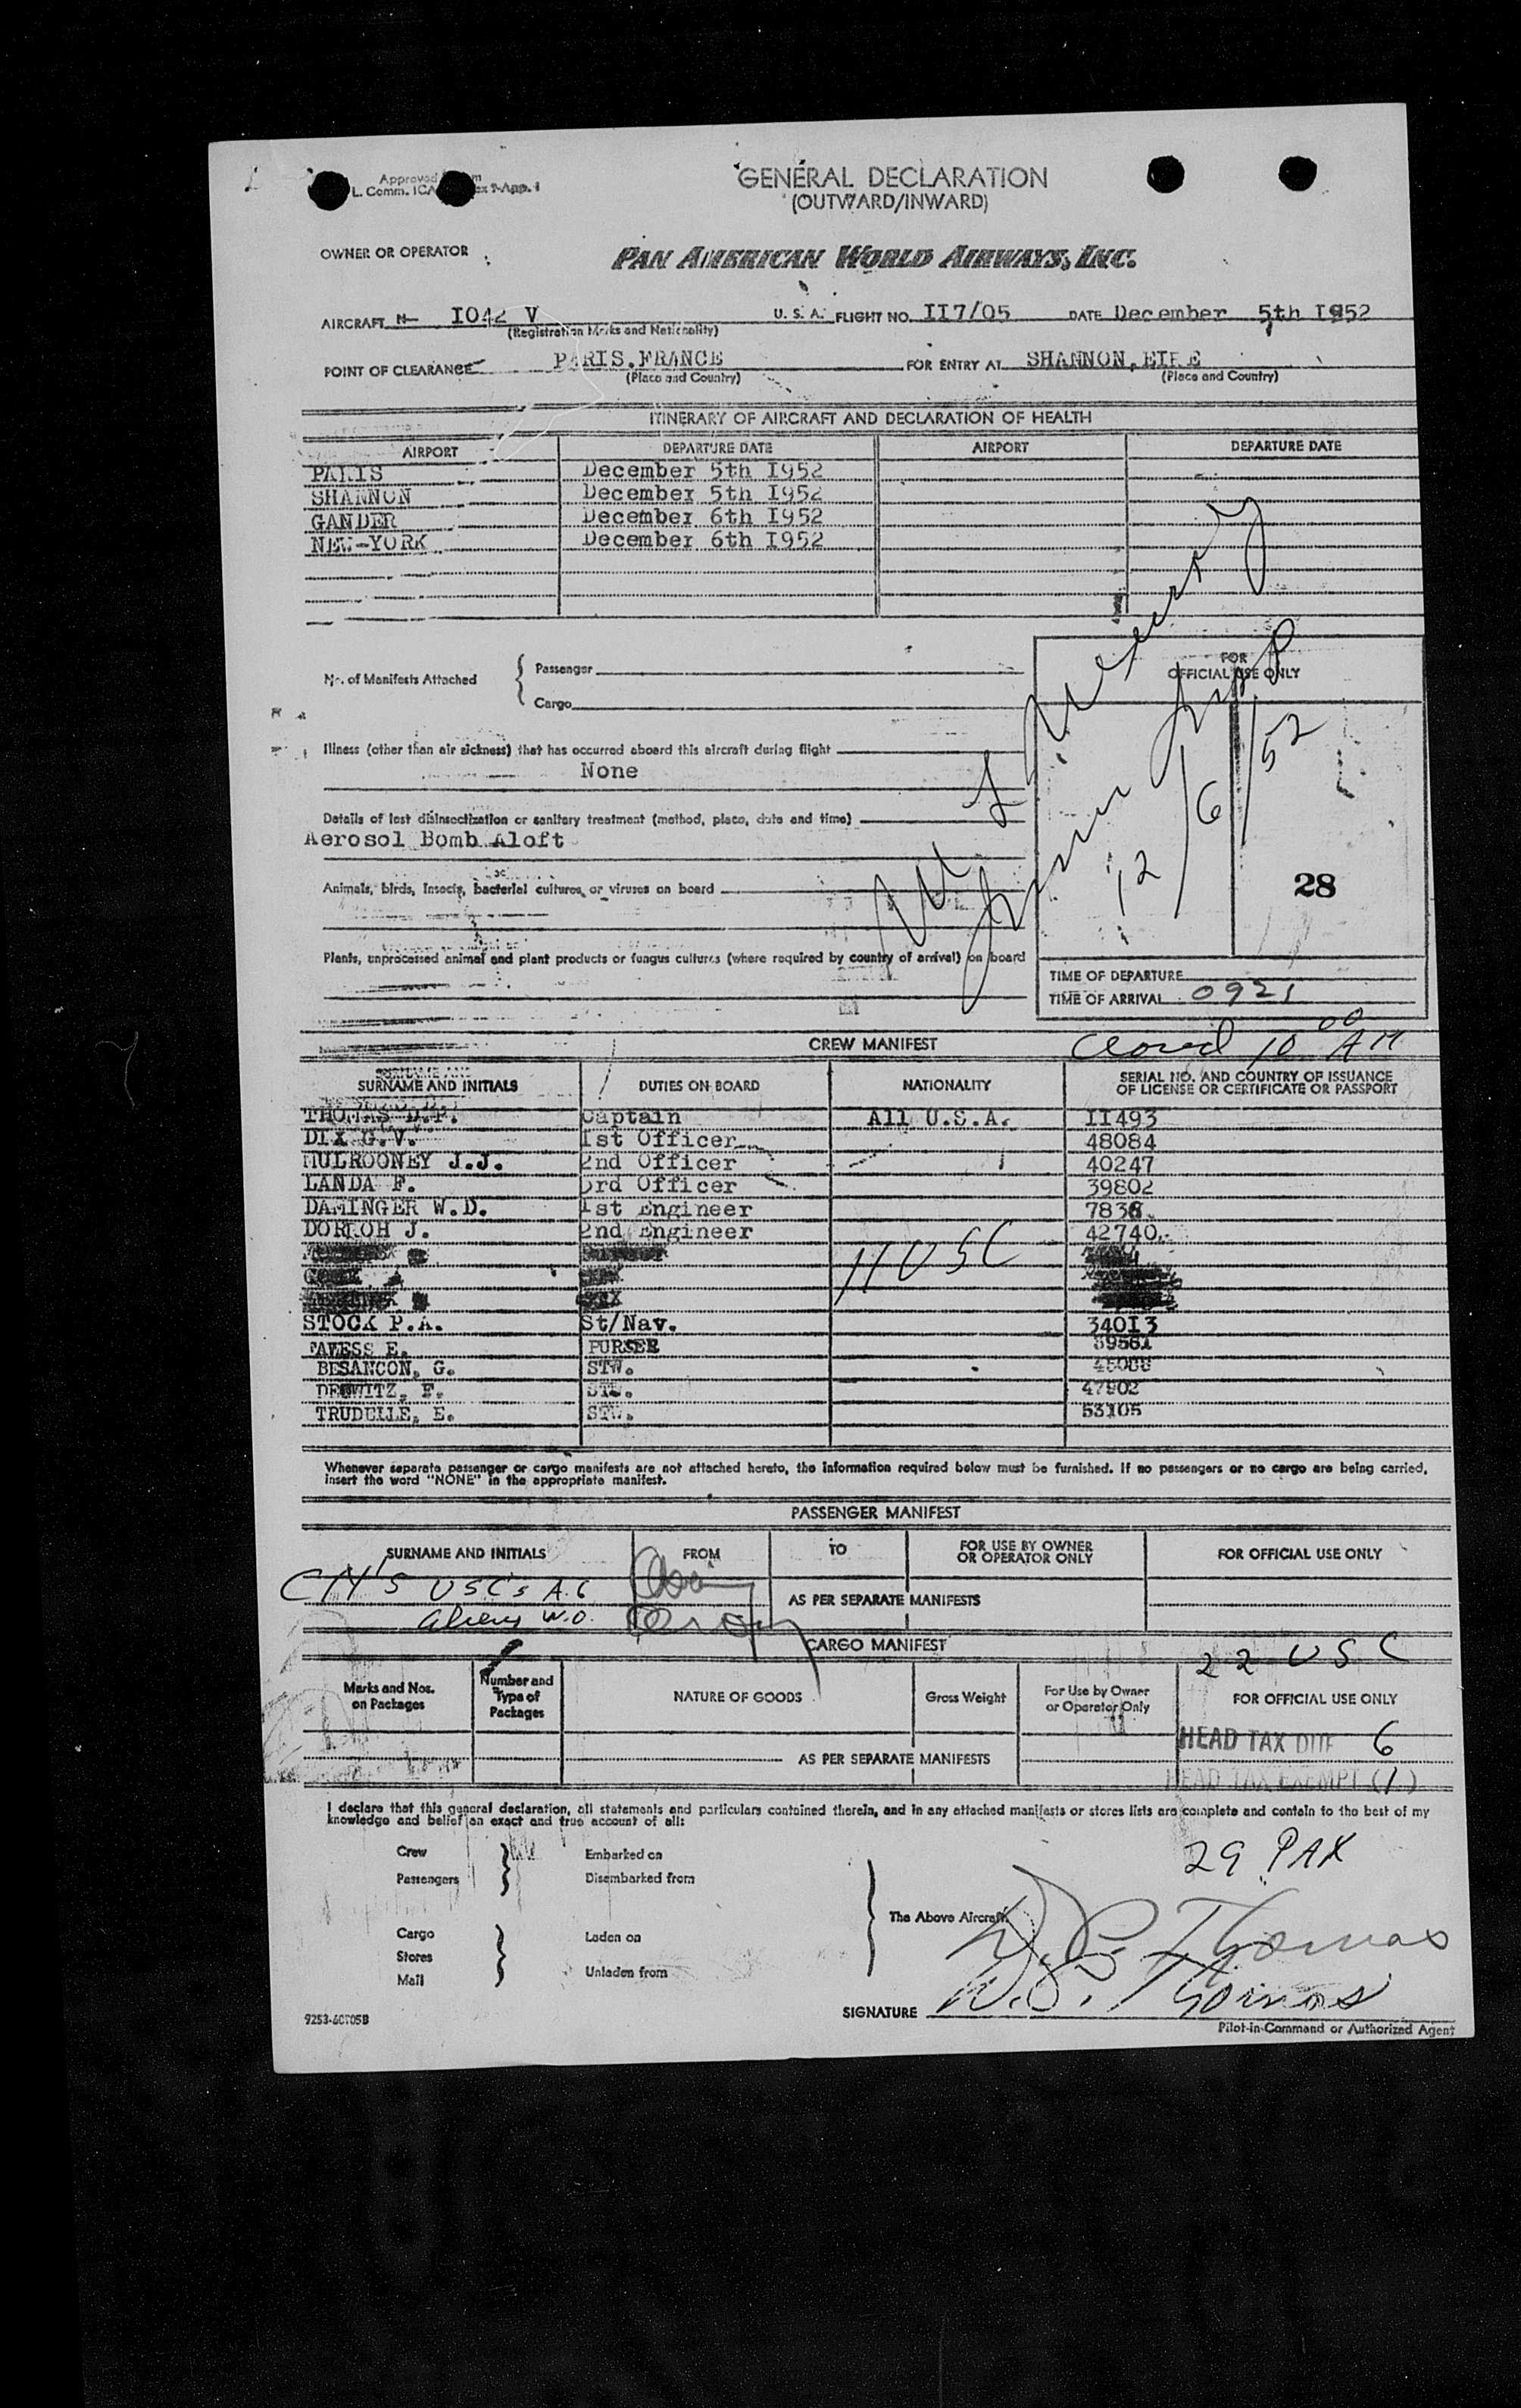 Approved
L. Comm. ICA
GENERAL DECLARATION
(OUTWARD/INWARD)
OWNER OR OPERATOR
PAN AMERICAN WORLD AIRWAYS, INC.
AIRCRAFT N- I042 V U. S. A. FLIGHT NO. II7/05 DATE December 5th I952
(Registration Marks and Nationality)
POINT OF CLEARANCE PARIS,FRANCE FOR ENTRY AT SHANNON,EIRE
(Place and Country) (Place and Country)
ITINERARY OF AIRCRAFT AND DECLARATION OF HEALTH
AIRPORT DEPARTURE DATE AIRPORT DEPARTURE DATE
PARIS December 5th I952
SHANNON December 5th I952
GANDER December 6th I952
NEW-YORK December 6th I952
No. of Manifests Attached Passenger
Cargo
FOR
OFFICIAL USE ONLY
Illness (other than air sickness) that has occurred aboard this aircraft during flight
None
12/6/52
Details of last disinsectization or sanitary treatment (method, place, date and time)
Aerosol Bomb Aloft
28
Animals, birds, insects, bacterial cultures, or viruses on board
Plants, unprocessed animal and plant products or fungus cultures (where required by country of arrival) on board
TIME OF DEPARTURE
TIME OF ARRIVAL 0921
CREW MANIFEST 10 00 AM
SURNAME AND INITIALS DUTIES ON BOARD NATIONALITY SERIAL NO. AND COUNTRY OF ISSUANCE
OF LICENSE OR CERTIFICATE OR PASSPORT
THOMAS D.P. Captain All U.S.A. II493
DIX G.V. 1st Officer 48084
MULROONEY J.J. 2nd Officer 40247
LANDA F. 3rd Officer 39802
DAMINGER W.D. 1st Engineer 7838
DORROH J. 2nd Engineer 42740
11 USC
STOCK P.A. St/Nav. 340I3
FAVESS E. PURSER 39561
BESANCON, G. STW.
F. STW. 47902
TRUDELLE, E. STW. 53105
Whenever separate passenger or cargo manifests are not attached hereto, the information required below must be furnished. If no passengers or no cargo are being carried,
insert the word "NONE" in the appropriate manifest.
PASSENGER MANIFEST
SURNAME AND INITIALS FROM TO FOR USE BY OWNER
OR OPERATOR ONLY FOR OFFICIAL USE ONLY
USC's A.6
AS PER SEPARATE MANIFESTS
aliens W.O.
CARGO MANIFEST 22 USC
Marks and Nos.
on Packages Number and
Type of
Packages NATURE OF GOODS Gross Weight For Use by Owner
or Operator Only FOR OFFICIAL USE ONLY
HEAD TAX DUE 6
AS PER SEPARATE MANIFESTS
HEAD TAX EXEMPT (1)
I declare that this general declaration, all statements and particulars contained therein, and in any attached manifests or stores lists are complete and contain to the best of my
knowledge and belief an exact and true account of all:
29 PAX
Crew Embarked on
Passengers Disembarked from
The Above Aircraft
Cargo Laden on
Stores
Mail Unladen from
D.P. Thomas
SIGNATURE D.P. Thomas
9253-6CT05B Pilot-in-Command or Authorized Agent